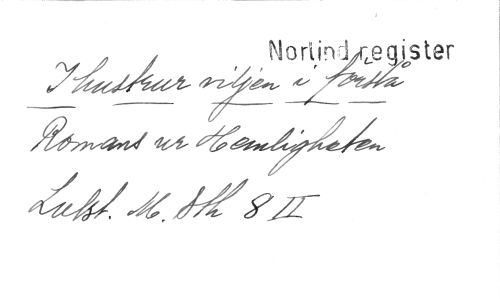 Norlind register
I hustrur viljen i förstå
Romans ur Hemligheten
Lublst. M. Sth 8 II